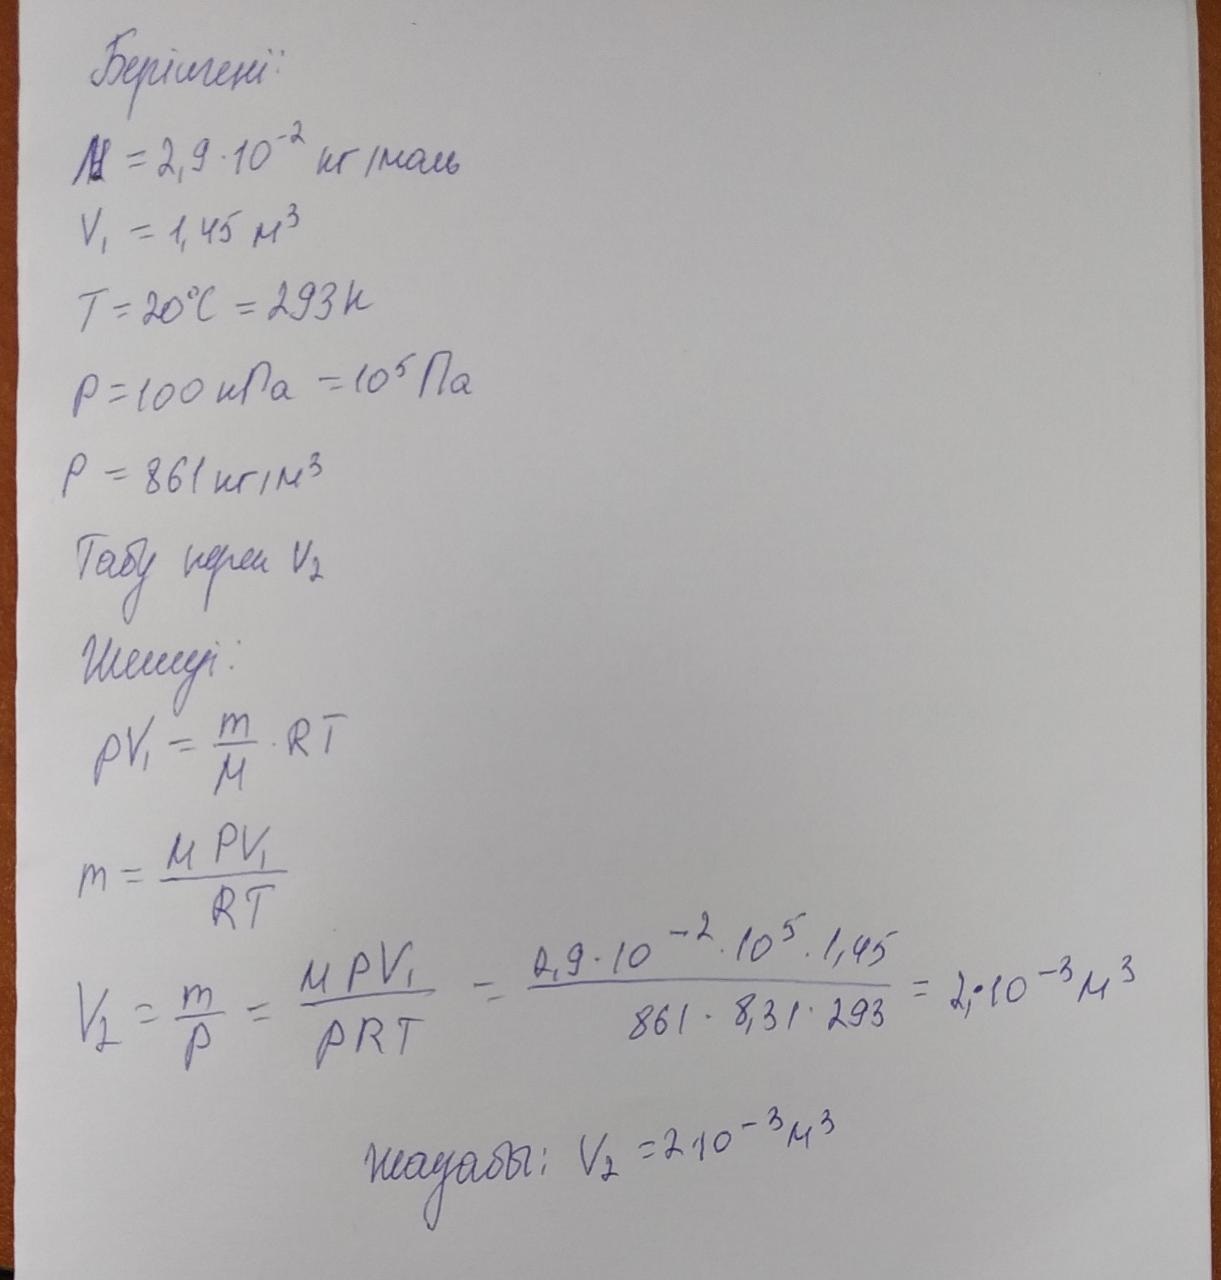 Берілгені:
M = 2,9·10⁻² кг/моль
V₁ = 1,45 м³
T = 20°C = 293К
P = 100 кПа = 10⁵ Па
ρ = 861 кг/м³
Табу керек V₂
Шешуі:
pV₁ = m/M · RT
m = M PV₁ / RT
V₂ = m/ρ = M PV₁ / ρRT = 2,9·10⁻²·10⁵·1,45 / 861·8,31·293 = 2,·10⁻³ м³
Жауабы: V₂ = 2·10⁻³ м³